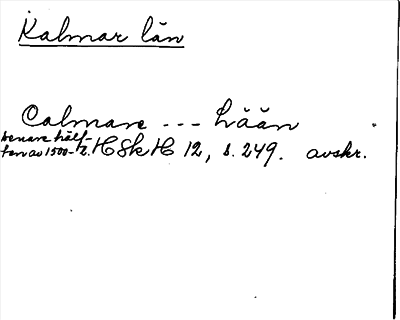 Kalmar län
Calmare --- Lään
senare hälf-
ten av 1500-t. HSkH 12, s. 249. avskr.